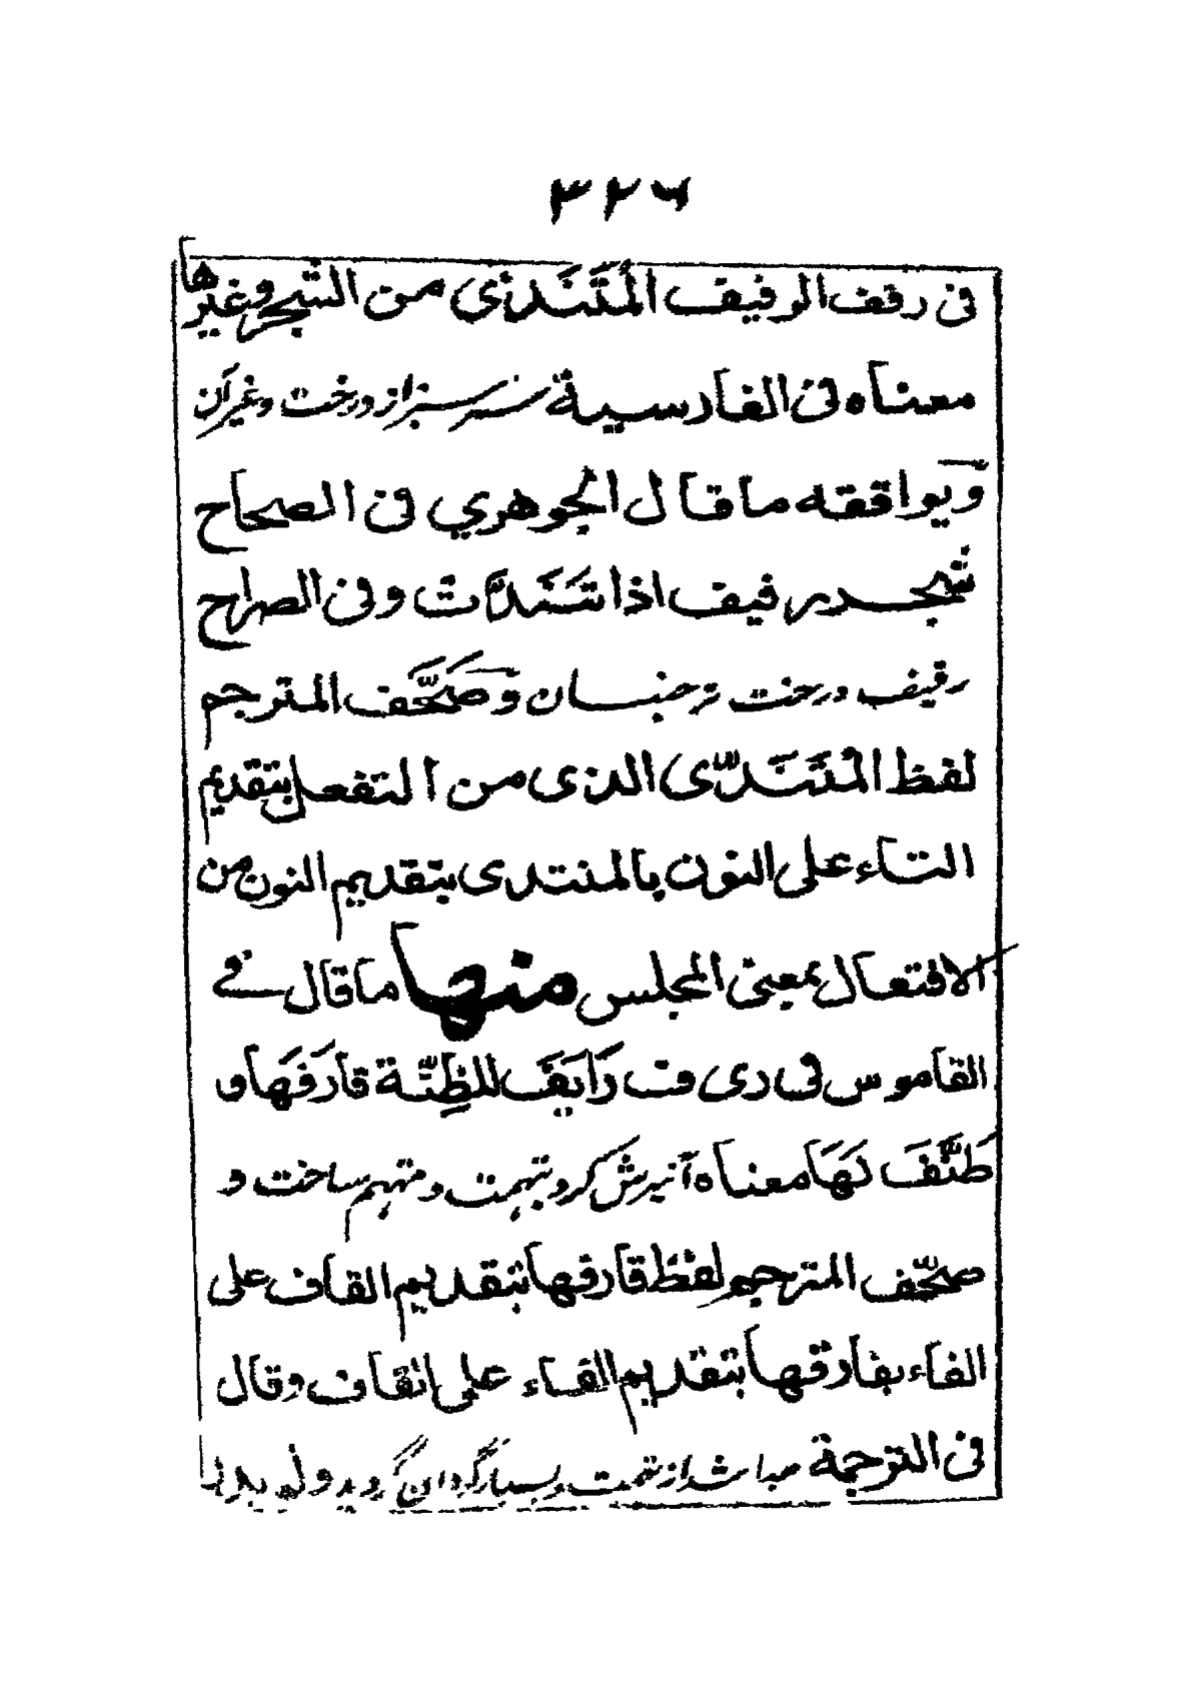 ٣٢٦
فی رفف الرفیف المُتَنَدّی من الشجر وغیرها
معناه فی الفارسیة سبز از درخت وغیر آن
وَیوافقه ما قال الجوهري فی الصحاح
شجر رفیف اذا تَنَدَّت وفی الصراح
رفیف درخت تر جنبان وَصَحَّف المترجم
لفظ المُتَنَدّی الذی من التفعل بتقدیم
التاء علی النون بالمنتدی بتقدیم النون من
الافتعال بمعنی المجلس منها ما قال فے
القاموس فی ری ف رَایَفَ للظِنَّة قارَفَهَا و
طَنَّفَ لَهَا معناه آمیزش کرد بتهمت ومتهم ساخت و
صحّف المترجم لفظ قارفها بتقدیم القاف علی
الفاء بفارقها بتقدیم الفاء علی القاف وقال
فی الترجمة جدا شد از تهمت و